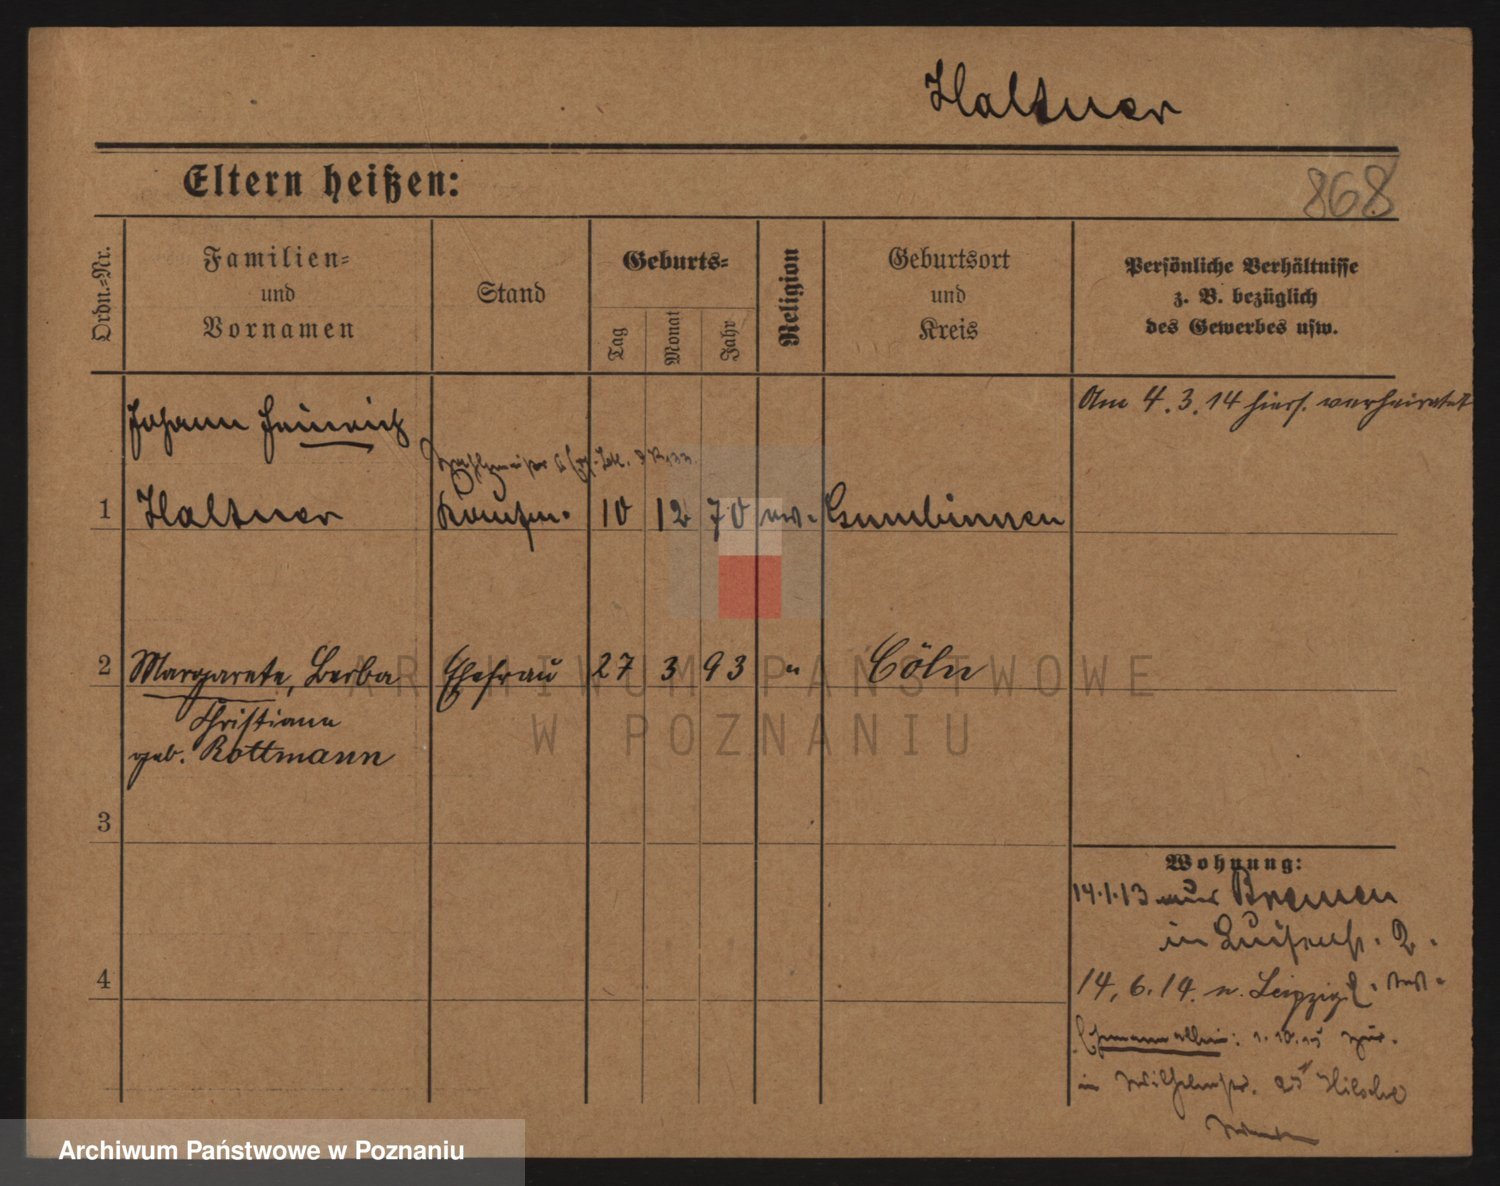 Haltner
Eltern heißen:
868
Ordn.-Nr.
Familien-
und
Vornamen
Stand
Geburts-
Tag
Monat
Jahr
Religion
Geburtsort
und
Kreis
Persönliche Verhältnisse
z. B. bezüglich
des Gewerbes usw.
Am 4.3.14 hiers. verheiratet
Johann Heinrich
1 Haltner 10 12 70 ev. Gumbinnen
2 Margarete, Berba Ehefrau 27 3 93 " Cöln
Christiann
geb. Rottmann
3
4
Wohnung:
14.1.13 aus Bremen
in Luisenstr. 2.
14.6.14 n. Leipzig
Ehemann allein: 1.10.15 zur.
in Wilhelmstr. 25
ARCHIWUM PAŃSTWOWE
W POZNANIU
Archiwum Państwowe w Poznaniu